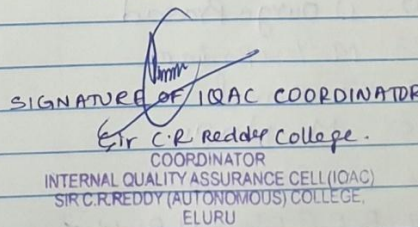 SIGNATURE OF IQAC COORDINATOR
Sir C.R Reddy College.
COORDINATOR
INTERNAL QUALITY ASSURANCE CELL (IQAC)
SIR C.R.REDDY (AUTONOMOUS) COLLEGE,
ELURU